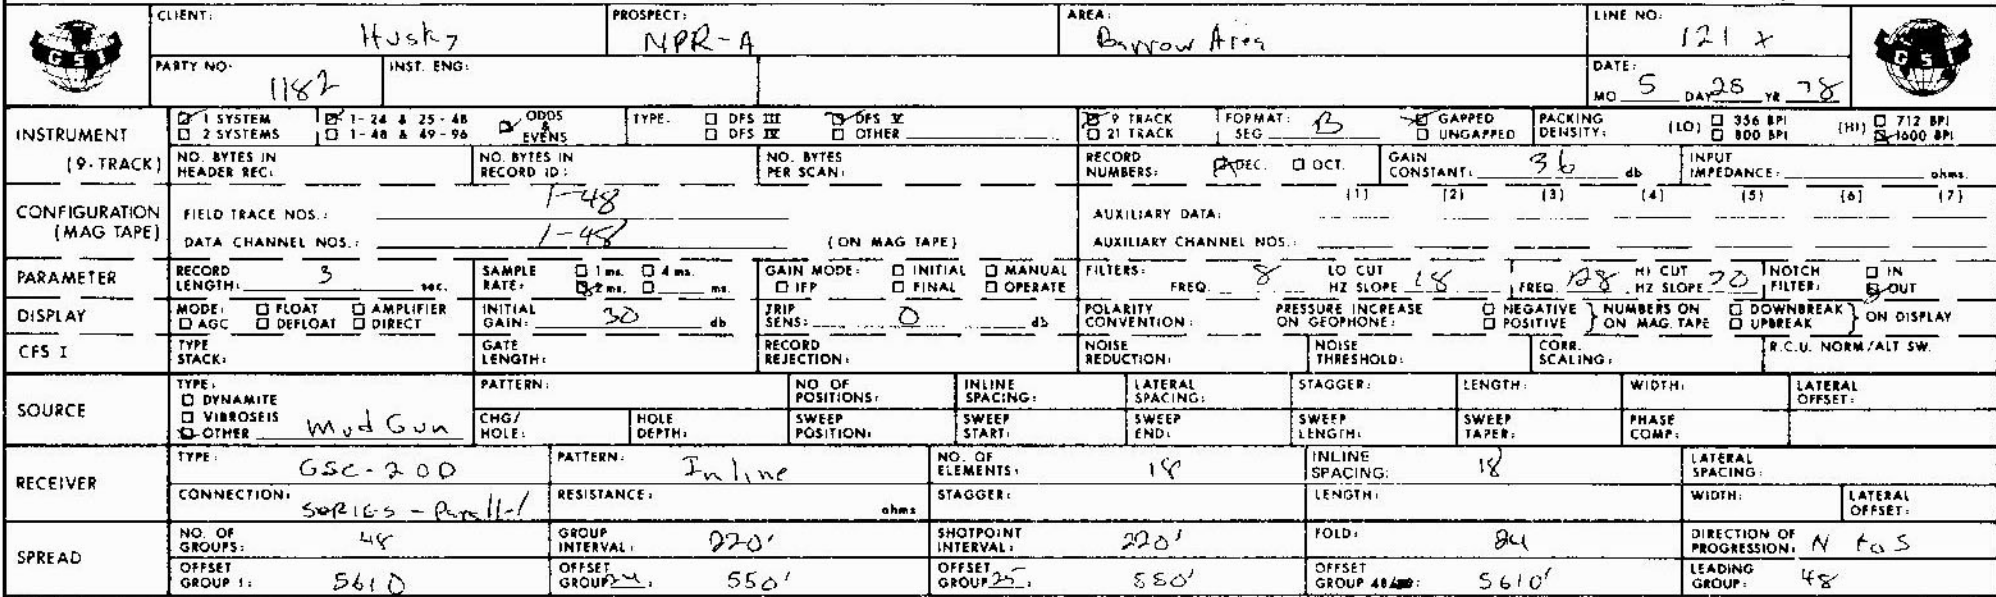 CLIENT: Husky PROSPECT: NPR-A AREA: Barrow Area LINE NO: 121 x
GSI GSI
PARTY NO: 1182 INST. ENG: DATE: MO 5 DAY 25 YR 78
INSTRUMENT (9-TRACK)
☑ 1 SYSTEM ☑ 1-24 & 25-48 ☑ ODDS & EVENS TYPE: ☐ DFS III ☑ DFS V ☑ 9 TRACK FORMAT: SEG B ☑ GAPPED PACKING DENSITY: (LO) ☐ 356 BPI (HI) ☐ 712 BPI
☐ 2 SYSTEMS ☐ 1-48 & 49-96 ☐ DFS IV ☐ OTHER ☐ 21 TRACK ☐ UNGAPPED ☐ 800 BPI ☑ 1600 BPI
NO. BYTES IN HEADER REC: NO. BYTES IN RECORD ID: NO. BYTES PER SCAN: RECORD NUMBERS: ☑ DEC. ☐ OCT. GAIN CONSTANT: 36 db INPUT IMPEDANCE: ohms.
CONFIGURATION (MAG TAPE)
FIELD TRACE NOS.: 1-48 AUXILIARY DATA: (1) (2) (3) (4) (5) (6) (7)
DATA CHANNEL NOS.: 1-48 (ON MAG TAPE) AUXILIARY CHANNEL NOS.:
PARAMETER
RECORD LENGTH: 3 sec. SAMPLE RATE: ☐ 1 ms. ☐ 4 ms. ☑ 2 ms. ☐ ms. GAIN MODE: ☐ INITIAL ☐ MANUAL ☐ IFP ☐ FINAL ☐ OPERATE FILTERS: FREQ. 8 LO CUT HZ SLOPE 18 FREQ. 128 HI CUT HZ SLOPE 70 NOTCH FILTER: ☐ IN ☑ OUT
DISPLAY
MODE: ☐ FLOAT ☐ AMPLIFIER ☐ AGC ☐ DEFLOAT ☐ DIRECT INITIAL GAIN: 30 db TRIP SENS: 0 db POLARITY CONVENTION: PRESSURE INCREASE ON GEOPHONE: ☐ NEGATIVE ☐ POSITIVE } NUMBERS ON MAG. TAPE ☐ DOWNBREAK ☐ UPBREAK } ON DISPLAY
CFS I
TYPE STACK: GATE LENGTH: RECORD REJECTION: NOISE REDUCTION: NOISE THRESHOLD: CORR. SCALING: R.C.U. NORM/ALT SW.
SOURCE
TYPE: ☐ DYNAMITE ☐ VIBROSEIS ☑ OTHER Mud Gun
PATTERN: NO OF POSITIONS: INLINE SPACING: LATERAL SPACING: STAGGER: LENGTH: WIDTH: LATERAL OFFSET:
CHG/HOLE: HOLE DEPTH: SWEEP POSITION: SWEEP START: SWEEP END: SWEEP LENGTH: SWEEP TAPER: PHASE COMP:
RECEIVER
TYPE: GSC-20D PATTERN: Inline NO. OF ELEMENTS: 18 INLINE SPACING: 18 LATERAL SPACING:
CONNECTION: SERIES - Parallel RESISTANCE: ohms STAGGER: LENGTH: WIDTH: LATERAL OFFSET:
SPREAD
NO. OF GROUPS: 48 GROUP INTERVAL: 220' SHOTPOINT INTERVAL: 220' FOLD: 24 DIRECTION OF PROGRESSION: N to S
OFFSET GROUP 1: 5610 OFFSET GROUP 24: 550' OFFSET GROUP 25: 550' OFFSET GROUP 48: 5610' LEADING GROUP: 48